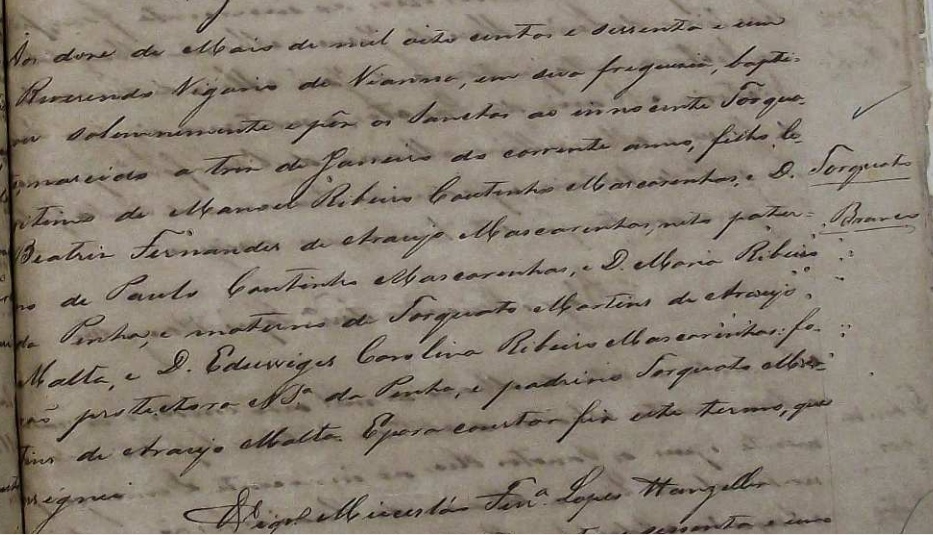 Aos doze de Maio de mil oito centos e sessenta e um
Reverendo Vigario de Vianna, em sua freguesia, bapti-
sou solemnemente e pôs os Sanctos ao innocente Torqua-
nascido a tres de Janeiro do corrente anno, filho le-
gitimo de Manoel Ribeiro Coutinho Mascarenhas, e D.
Beatriz Fernandes de Araujo Mascarenhas, neto pater-
no de Paulo Coutinho Mascarenhas, e D. Maria Ribeiro
da Penha, e materno de Torquato Martins de Araujo
Malta, e D. Eduwiges Carolina Ribeiro Mascarenhas: fo-
rão protectora N Sª da Penha, e padrinho Torquato Mar-
tins de Araujo Malta. E para constar fiz este termo, que
assignei
Torquato
Branco
Vigrº Miecesláo Ferrª Lopes Wanzeller
sessenta e um